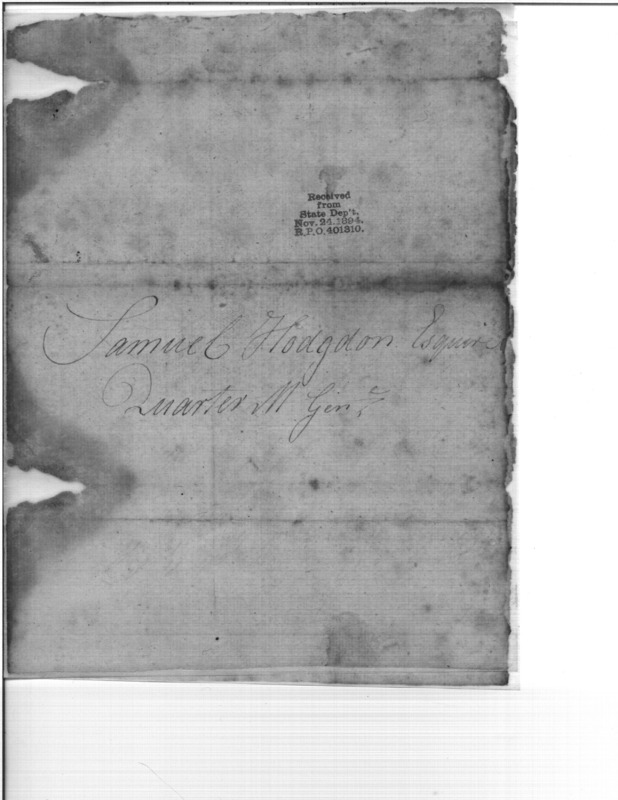 Received
from
State Dep't.
Nov. 24. 1894.
R.P.O. 401310.
Samuel Hodgdon Esquire
Quarter M Genr.